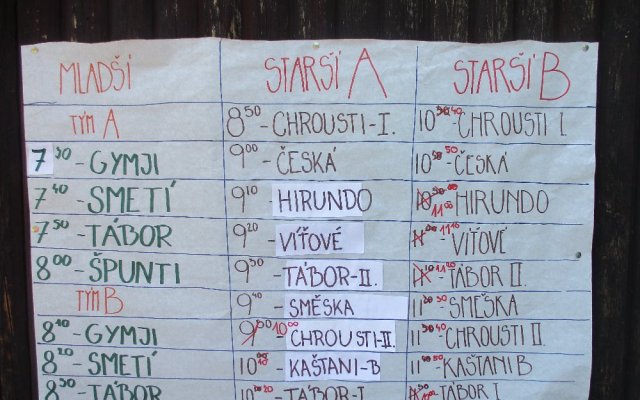 MLADŠÍ STARŠÍ A STARŠÍ B
TÝM A 8⁵⁰-CHROUSTI-I. CHROUSTI I.
7³⁰-GYMJI 9⁰⁰-ČESKÁ ČESKÁ
7⁴⁰-SMETÍ 9¹⁰-HIRUNDO 11⁰⁰ HIRUNDO
7⁵⁰-TÁBOR 9²⁰-VÍŤOVÉ 11¹⁰ VÍŤOVÉ
8⁰⁰-ŠPUNTI 9³⁰-TÁBOR-II. 11²⁰ TÁBOR II.
TÝM B 9⁴⁰-SMĚSKA SMĚSKA
8¹⁰-GYMJI 10⁰⁰ CHROUSTI-II. CHROUSTI II
8²⁰-SMETÍ KAŠTANI-B KAŠTANI B
8³⁰-TÁBOR TÁBOR-I TÁBOR I